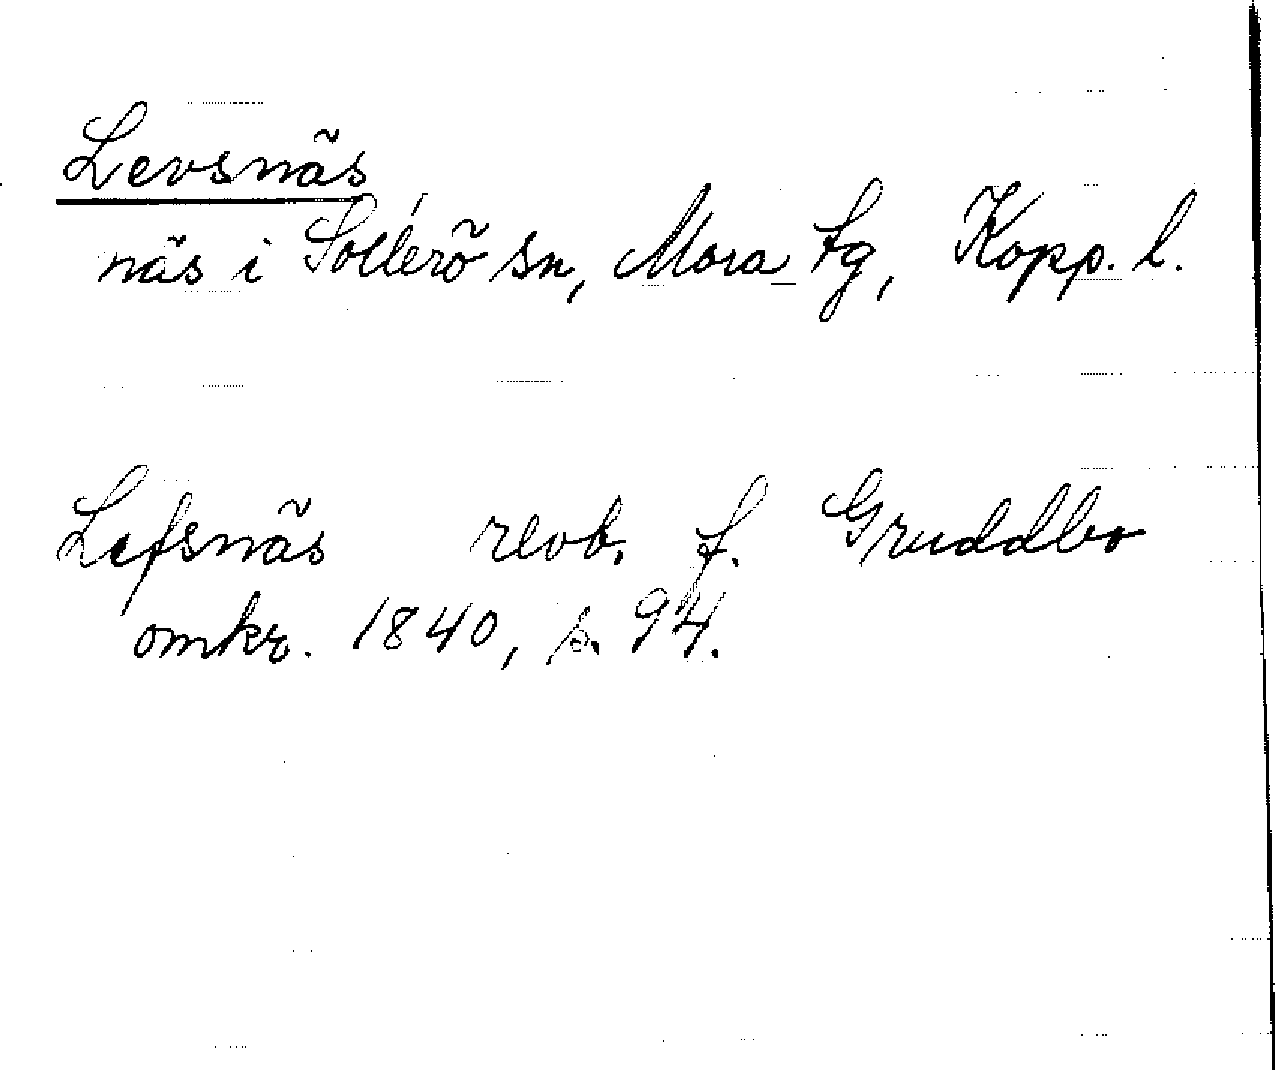 Levsnäs
näs i Sollerö sn, Mora tg, Kopp. l.
Lefsnäs revb. f. Gruddbo
omkr. 1840, s. 94.